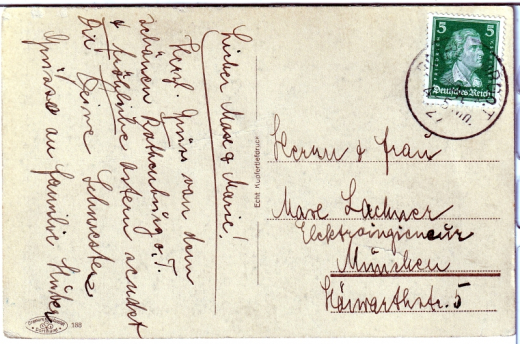 Lieber Max & Marie!
Herzl. Grüße von dem
schönen Rothenburg o./T.
& fröhliche Ostern sendet
Dir Deine Schwester
Grüsse an Familie Huber
Echt Kupfertiefdruck
188
5 5
Deutsches Reich
27
Herrn & Frau
Max Lachner
Elektroingieneur
München
Hörwarthstr. 5